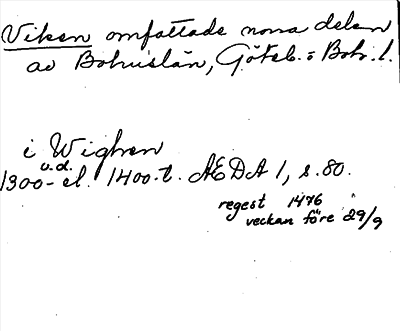 Viken omfattade norra delen
av Bohuslän, Göteb. o Boh. l.
i Wighen
u.d.
1300- el. 1400-t. AEDA 1, s. 80.
regest 1476
veckan före 29/9